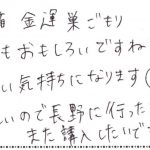 箱 金運巣ごもり
もおもしろいですね
い気持ちになります(
しいので長野に行った
また購入したいで